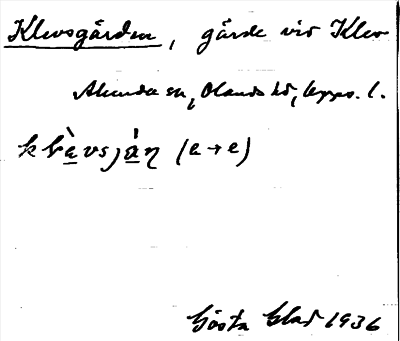 Klevsgården, gärde vid Klev
Alunda sn, Olands hd, Upps. l.
(a→e)
Gösta Blad 1936